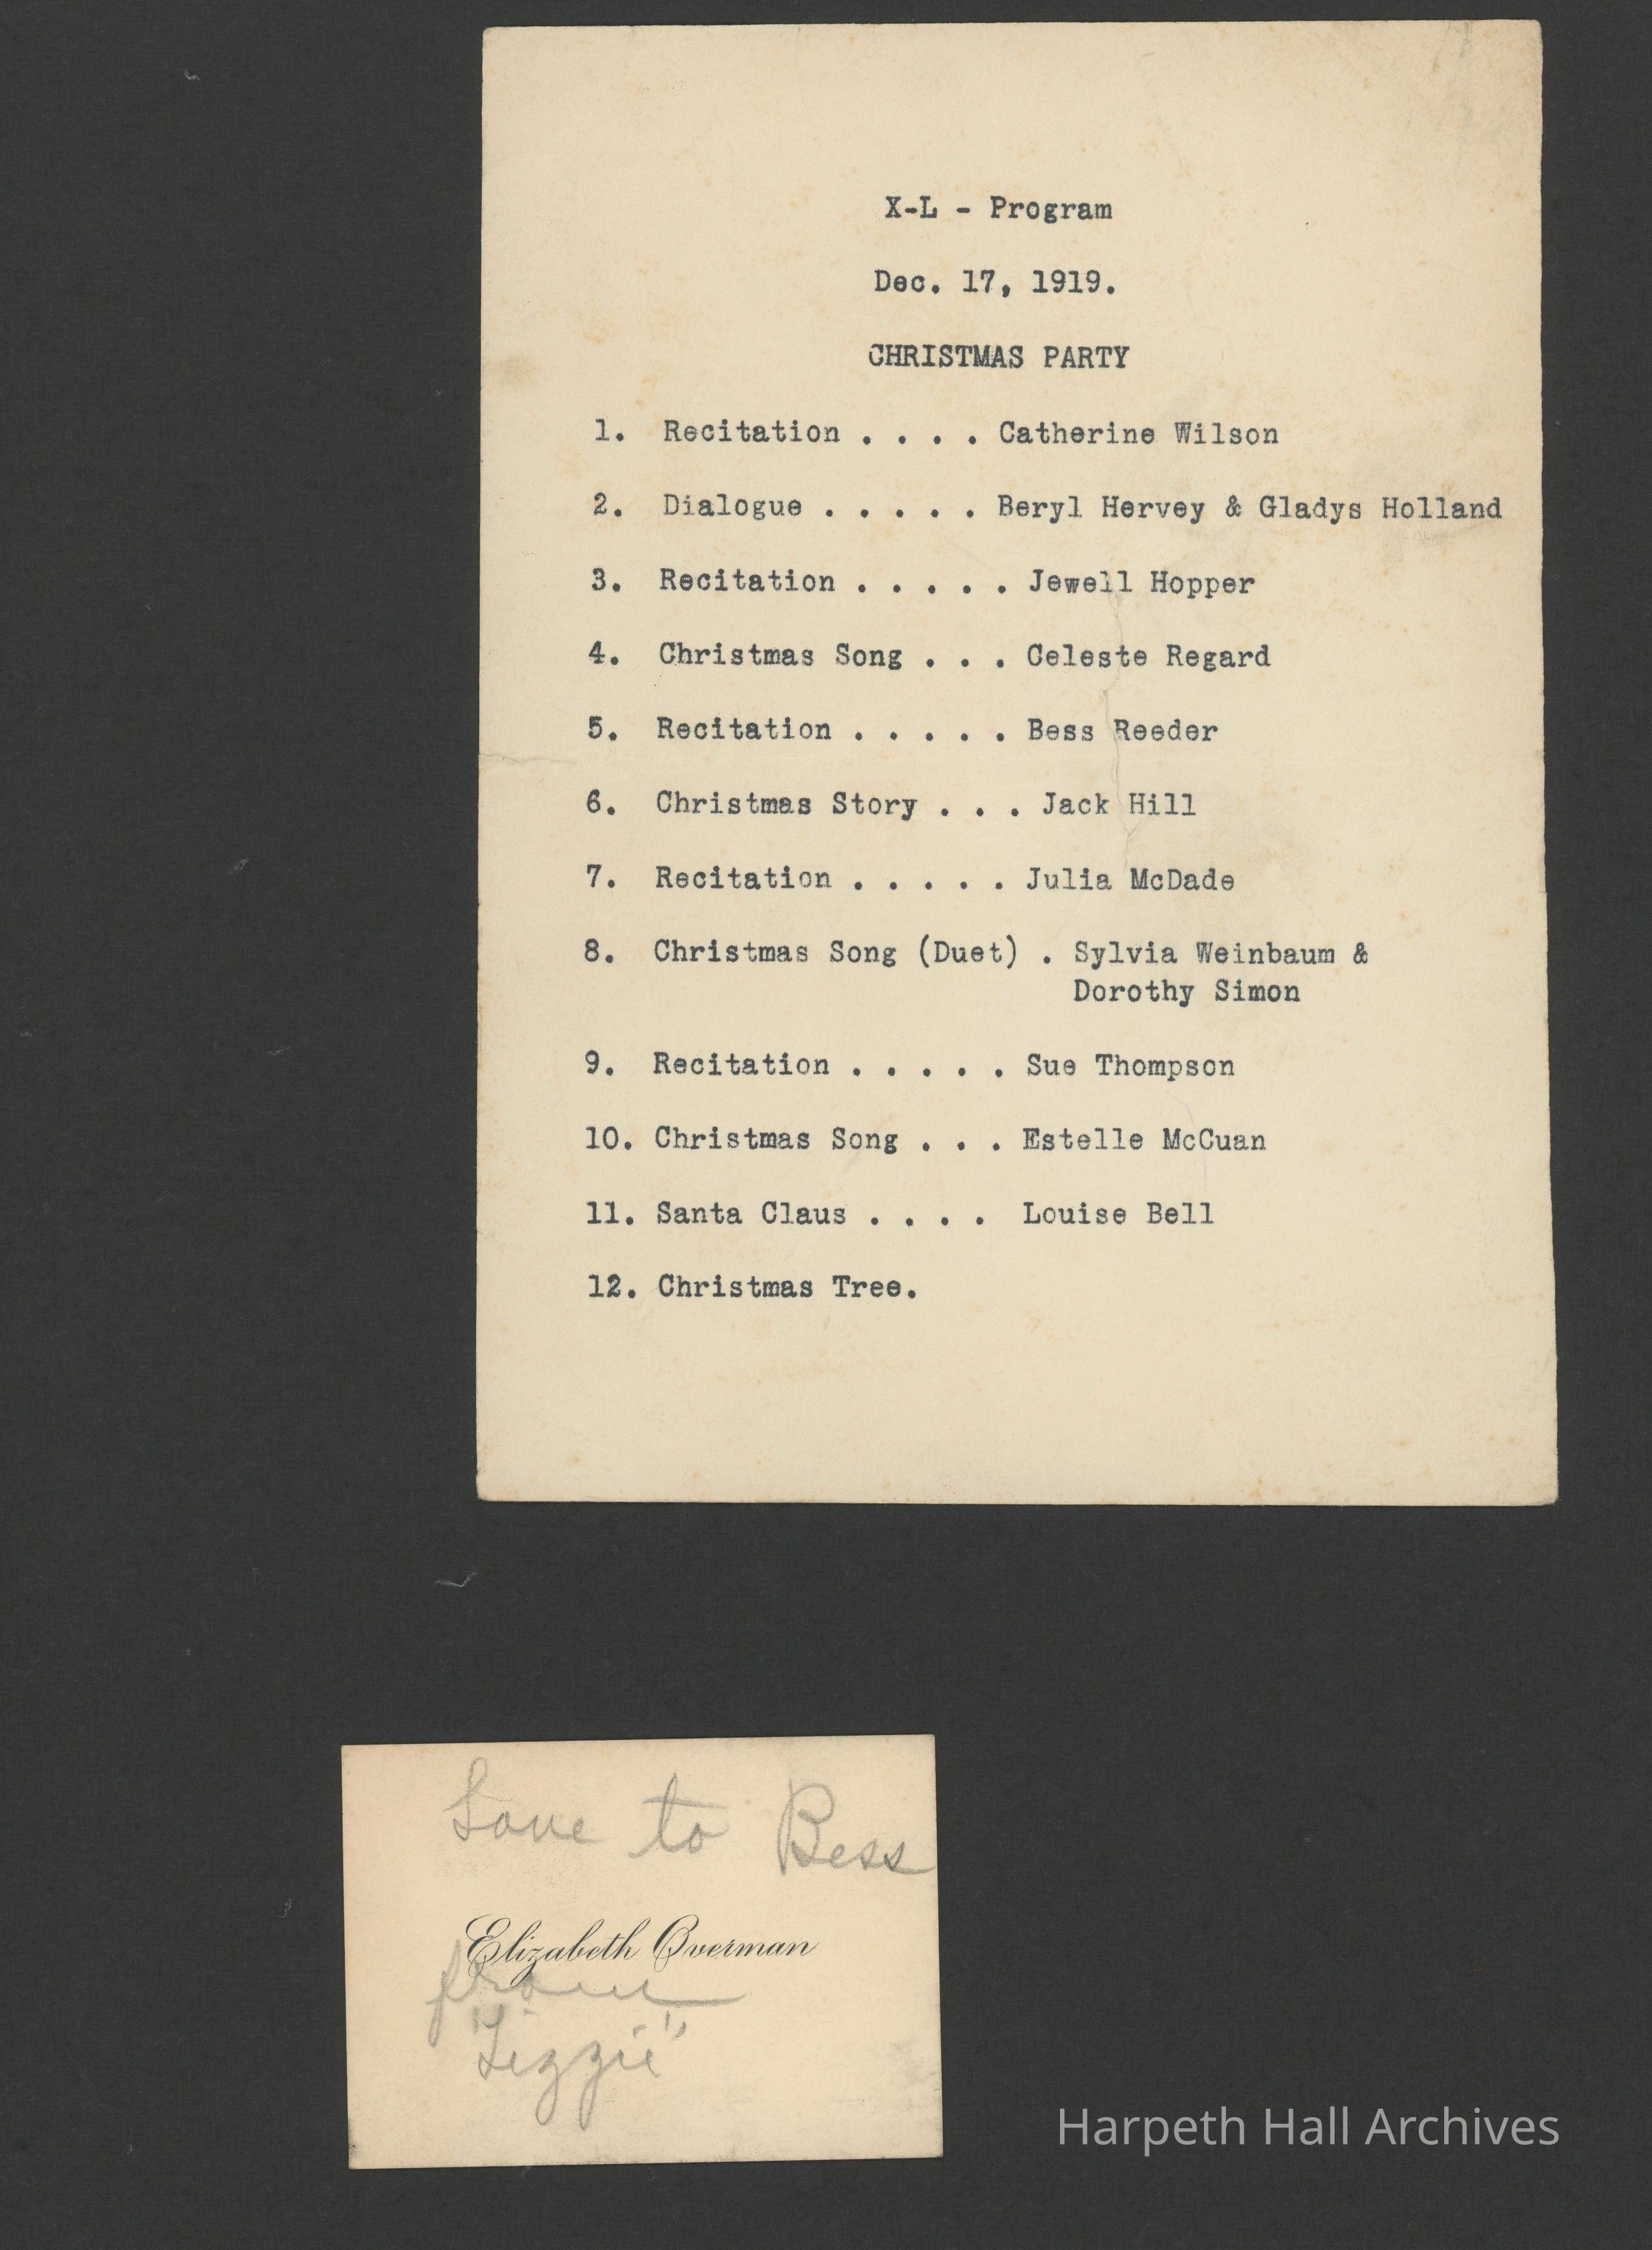 X-L - Program
Dec. 17, 1919.
CHRISTMAS PARTY
1. Recitation . . . . Catherine Wilson
2. Dialogue . . . . . Beryl Hervey & Gladys Holland
3. Recitation . . . . . Jewell Hopper
4. Christmas Song . . . Celeste Regard
5. Recitation . . . . . Bess Reeder
6. Christmas Story . . . Jack Hill
7. Recitation . . . . . Julia McDade
8. Christmas Song (Duet) . Sylvia Weinbaum &
Dorothy Simon
9. Recitation . . . . . Sue Thompson
10. Christmas Song . . . Estelle McCuan
11. Santa Claus . . . . Louise Bell
12. Christmas Tree.
Love to Bess
Elizabeth Overman
from
"Lizzie"
Harpeth Hall Archives